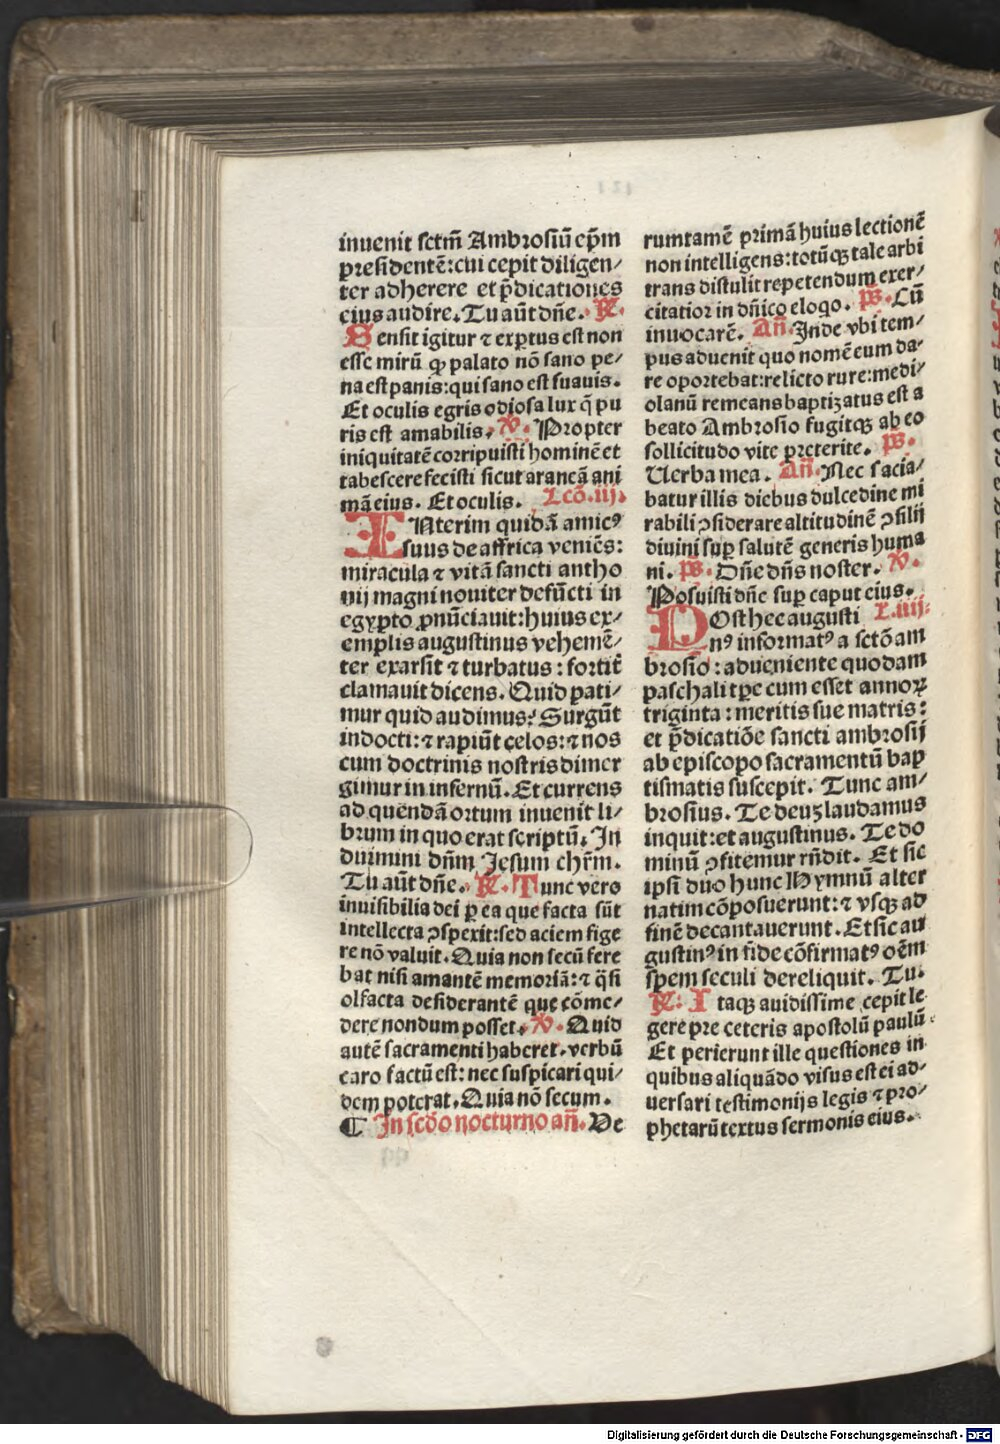 inuenit sctm̄ Ambrosiū ep̄m
presidentē: cui cepit diligen/
ter adherere et p̄dicationes
eius audire. Tu aūt dn̄e. ℟.
Sensit igitur ⁊ exꝑtus est non
esse mirū ꝙ palato nō sano pe/
na est panis: qui sano est suauis.
Et oculis egris odiosa lux q̄ pu
ris est amabilis. ℣. Propter
iniquitatē corripuisti hominē et
tabescere fecisti sicut araneā ani
mā eius. Et oculis. Lcō. iij.
INterim quidā amicꝰ
suus de affrica veniēs:
miracula ⁊ vitā sancti antho
nij magni nouiter defūcti in
egypto ꝓnūciauit: huius ex/
emplis augustinus vehemē/
ter exarsit ⁊ turbatus: fortit̄
clamauit dicens. Quid pati/
mur quid audimus? Surgūt
indocti: ⁊ rapiūt celos: ⁊ nos
cum doctrinis nostris dimer
gimur in infernū. Et currens
ad quendā ortum inuenit li/
brum in quo erat scriptū. In
duimini dn̄m Jesum chr̄m.
Tu aūt dn̄e. ℟. Tunc vero
inuisibilia dei ꝑ ea que facta sūt
intellecta ꝯspexit: sed aciem fige
re nō valuit. Quia non secū fere
bat nisi amantē memoriā: ⁊ q̄si
olfacta desiderantē que cōme/
dere nondum posset. ℣. Quid
autē sacramenti haberet. verbū
caro factū est: nec suspicari qui/
dem poterat. Quia nō secum.
¶ In scd̄o nocturno an̄. Ve
rumtamē primā huius lectionē
non intelligens: totūqꝫ tale arbi
trans distulit repetendum exer/
citatior in dn̄ico eloqo. p̄s. Cū
inuocarē. An̄. Inde vbi tem/
pus aduenit quo nomē eum da/
re oportebat: relicto rure: medi/
olanū remeans baptizatus est a
beato Ambrosio fugitqꝫ ab eo
sollicitudo vite preterite. p̄s.
Verba mea. An̄. Nec sacia/
batur illis diebus dulcedine mi
rabili ꝯsiderare altitudinē ꝯsilij
diuini suꝑ salutē generis huma
ni. p̄s. Dn̄e dn̄s noster. ℣.
Posuisti dn̄e suꝑ caput eius.
POst hec augusti L. iiij.
nꝰ informatꝰ a sctō am
brosio: adueniente quodam
paschali tꝑe cum esset annoꝝ
triginta: meritis sue matris:
et p̄dicatiōe sancti ambrosij
ab episcopo sacramentū bap
tismatis suscepit. Tunc am/
brosius. Te deuꝫ laudamus
inquit: et augustinus. Te do
minū ꝯfitemur rn̄dit. Et sic
ipsi duo hunc Hymnū alter
natim cōposuerunt: ⁊ vsqꝫ ad
finē decantauerunt. Et sic au
gustinꝰ in fide cōfirmatꝰ oēm
spem seculi dereliquit. Tu.
℟: Itaqꝫ auidissime cepit le
gere pre ceteris apostolū paulū.
Et perierunt ille questiones in
quibus aliquādo visus est ei ad/
uersari testimonijs legis ⁊ pro/
phetarū textus sermonis eius.
Digitalisierung gefördert durch die Deutsche Forschungsgemeinschaft - DFG